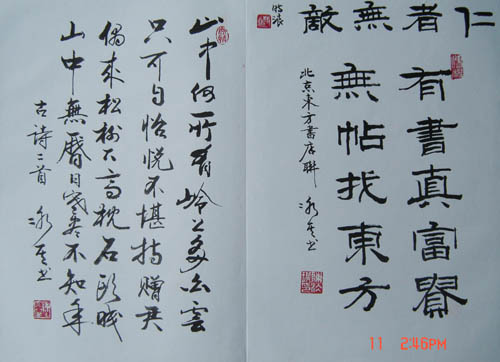 仁者無敵
有書真富貴
無帖找東方
北京東方書店聯
山中何所有岭上多白雲
只可自怡悦不堪持贈君
偶来松樹下高枕石頭眠
山中無曆日寒尽不知年
古詩二首
11 2:46PM